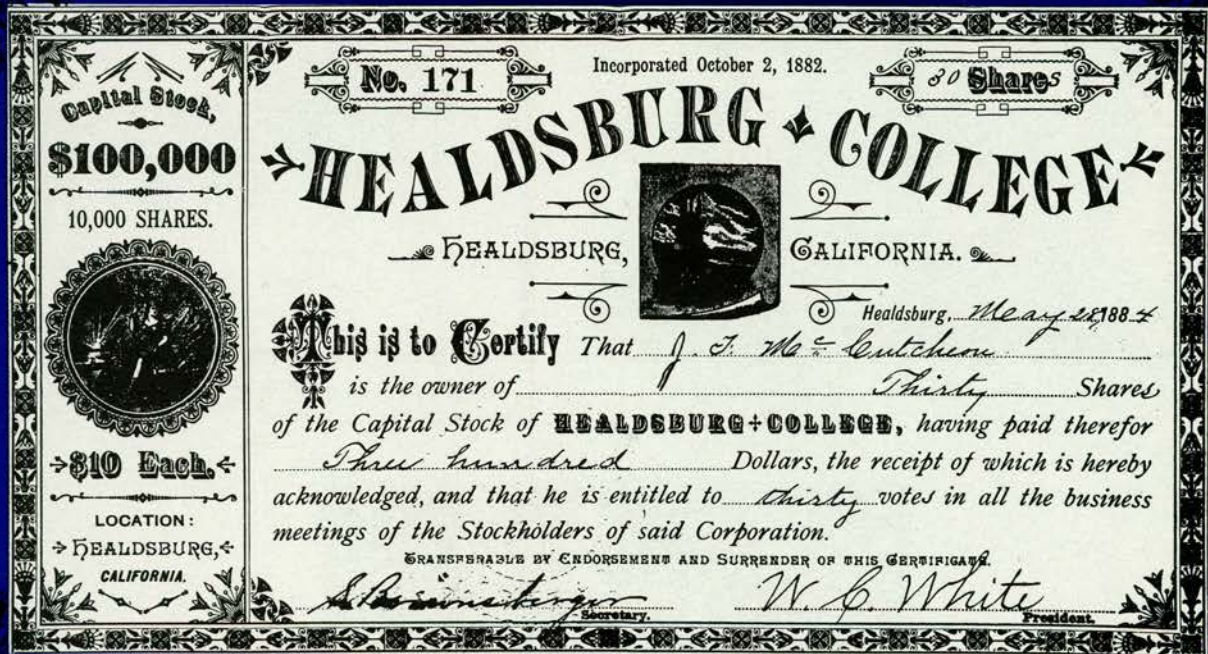 Capital Stock,
$100,000
10,000 SHARES.
$10 Each.
LOCATION:
HEALDSBURG,
CALIFORNIA.
No. 171
Incorporated October 2, 1882.
30 Shares
HEALDSBURG COLLEGE
HEALDSBURG, CALIFORNIA.
Healdsburg, May 28, 1884
This is to Certify That J. F. McCutchen
is the owner of Thirty Shares
of the Capital Stock of HEALDSBURG COLLEGE, having paid therefor
Three hundred Dollars, the receipt of which is hereby
acknowledged, and that he is entitled to thirty votes in all the business
meetings of the Stockholders of said Corporation.
TRANSFERABLE BY ENDORSEMENT AND SURRENDER OF THIS CERTIFICATE.
S. Brownsberger W. C. White
Secretary. President.